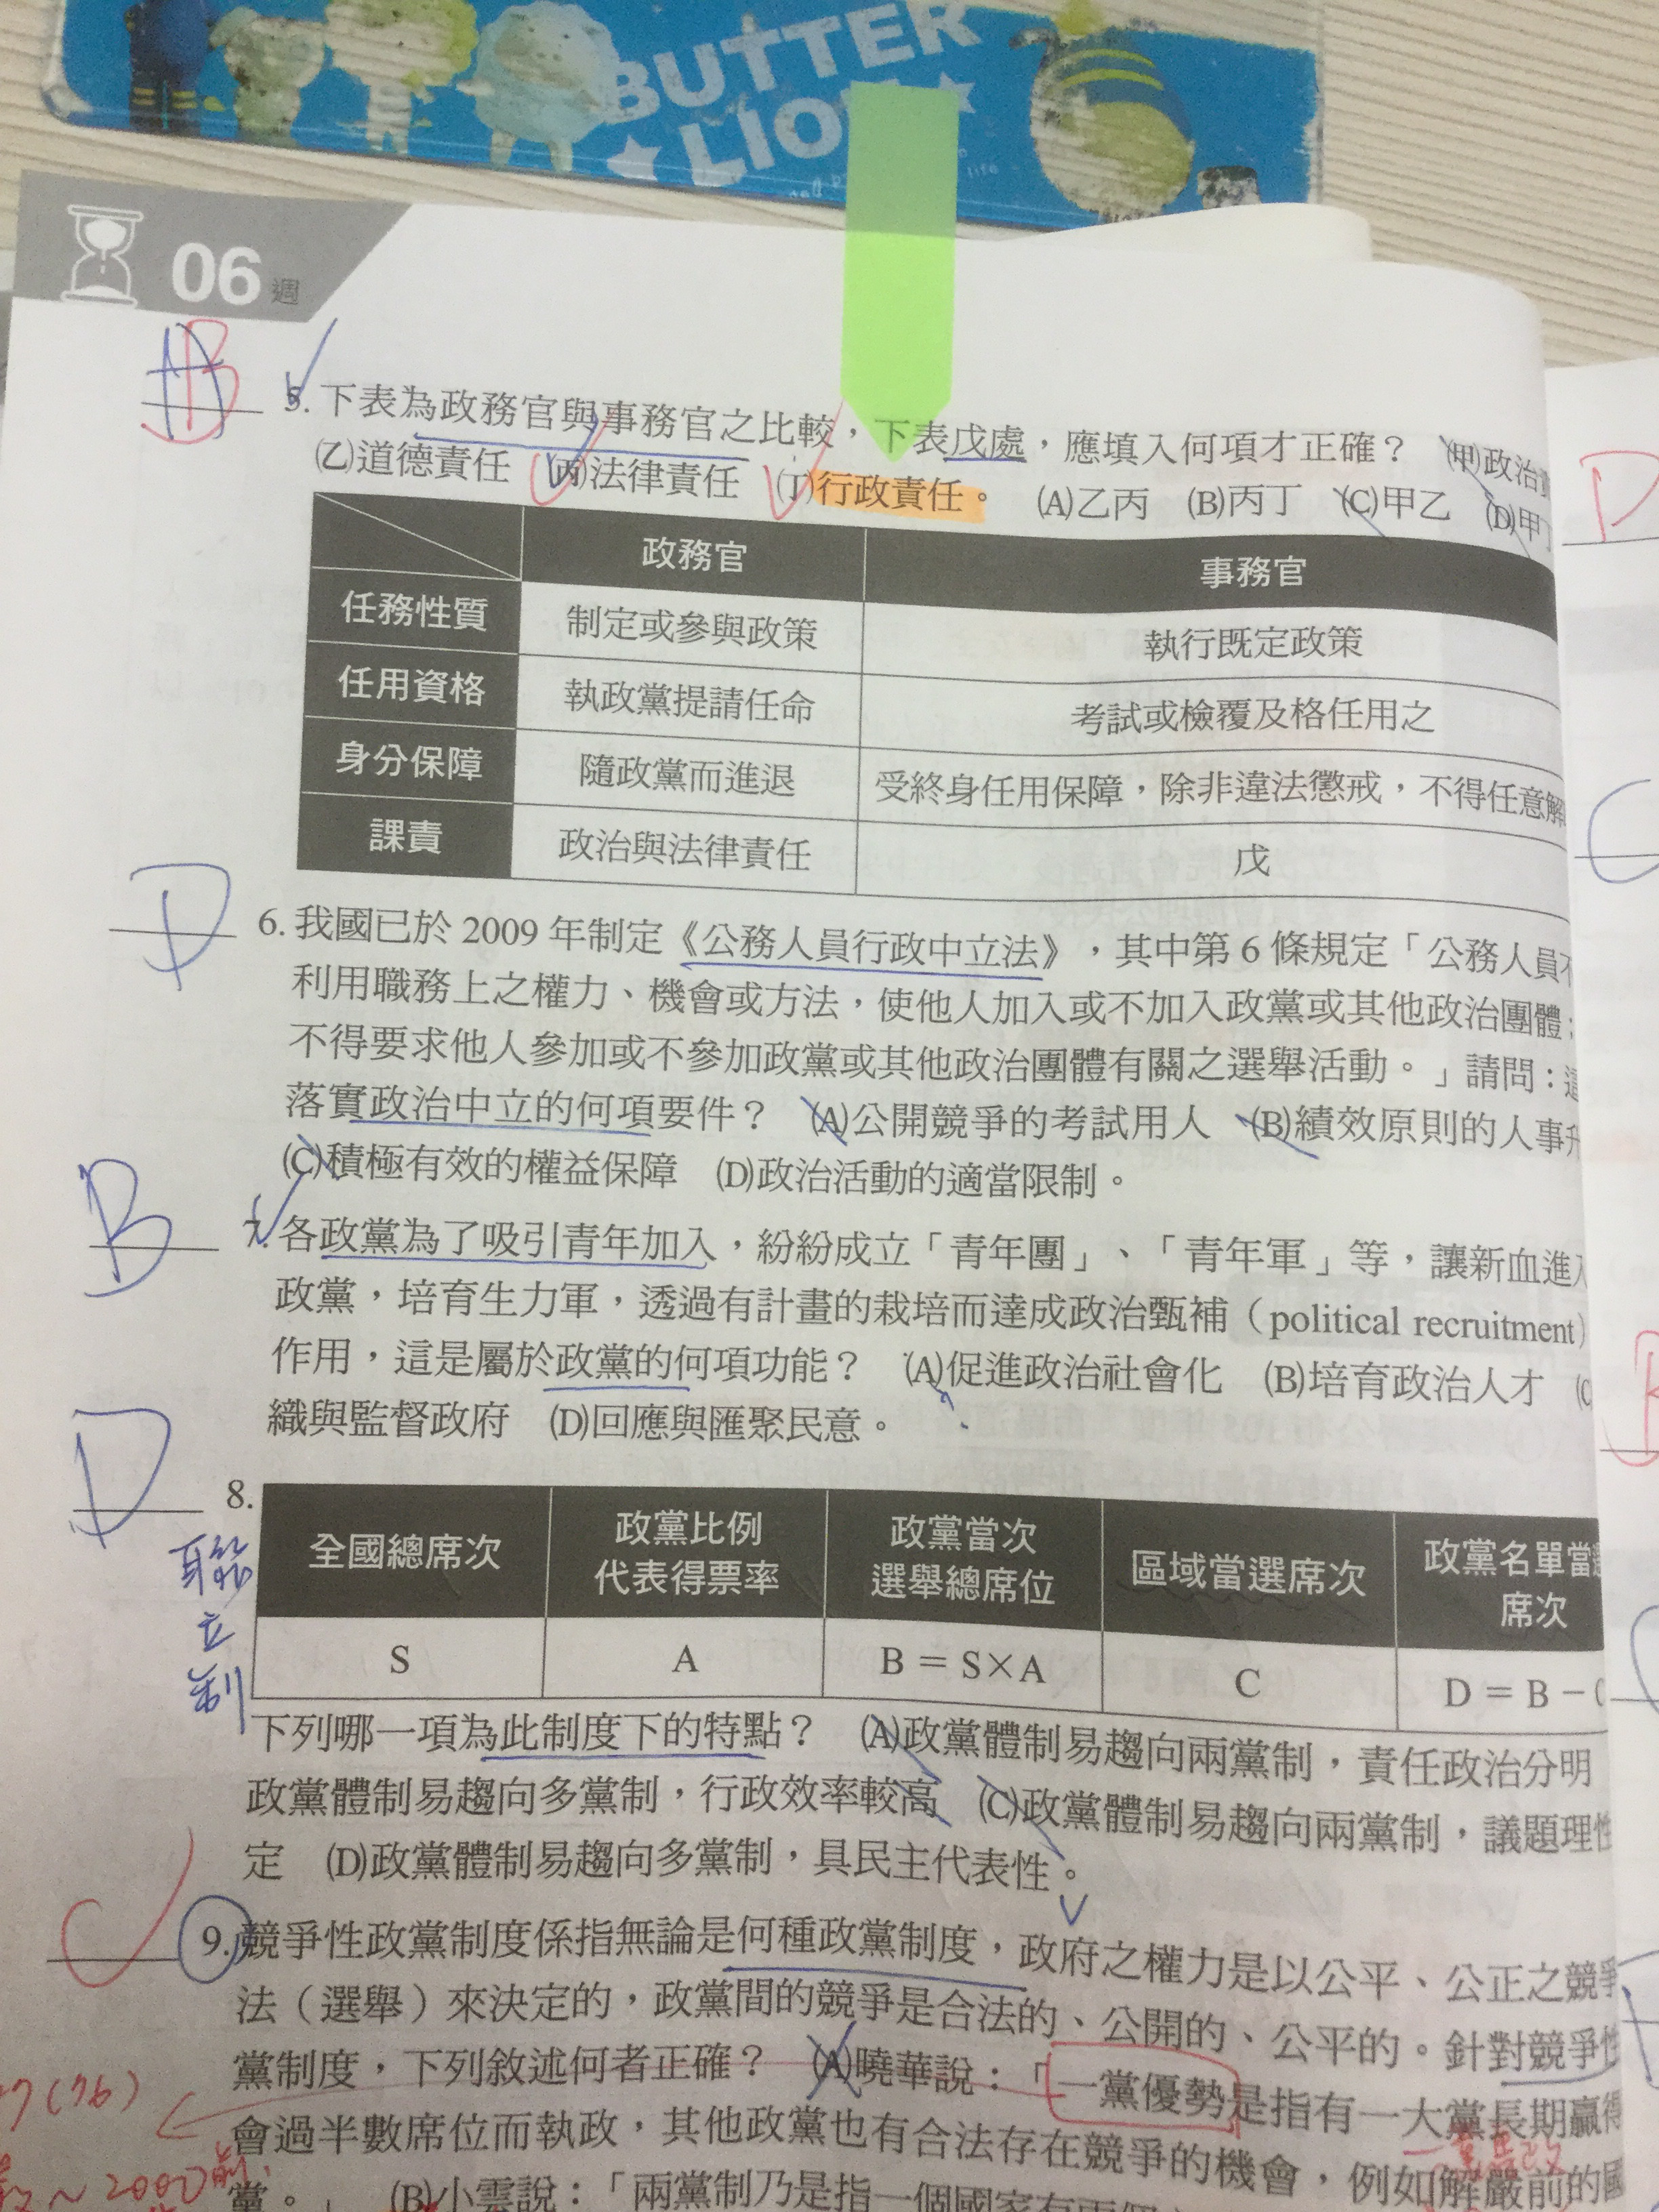 BUTTER
LION
life
06週
B
5. 下表為政務官與事務官之比較，下表戊處，應填入何項才正確？ (甲)政治
(乙)道德責任 (丙)法律責任 (丁)行政責任。 (A)乙丙 (B)丙丁 (C)甲乙 (D)甲
D
政務官 事務官
任務性質 制定或參與政策 執行既定政策
任用資格 執政黨提請任命 考試或檢覆及格任用之
身分保障 隨政黨而進退 受終身任用保障，除非違法懲戒，不得任意解
課責 政治與法律責任 戊
C
D
6. 我國已於 2009 年制定《公務人員行政中立法》，其中第 6 條規定「公務人員不
利用職務上之權力、機會或方法，使他人加入或不加入政黨或其他政治團體；
不得要求他人參加或不參加政黨或其他政治團體有關之選舉活動。」請問：這
落實政治中立的何項要件？ (A)公開競爭的考試用人 (B)績效原則的人事升
(C)積極有效的權益保障 (D)政治活動的適當限制。
B
7. 各政黨為了吸引青年加入，紛紛成立「青年團」、「青年軍」等，讓新血進入
政黨，培育生力軍，透過有計畫的栽培而達成政治甄補（political recruitment）
作用，這是屬於政黨的何項功能？ (A)促進政治社會化 (B)培育政治人才 (C
織與監督政府 (D)回應與匯聚民意。
D
聯立制
8.
全國總席次 政黨比例代表得票率 政黨當次選舉總席位 區域當選席次 政黨名單當選席次
S A B＝S×A C D＝B－C
下列哪一項為此制度下的特點？ (A)政黨體制易趨向兩黨制，責任政治分明
政黨體制易趨向多黨制，行政效率較高 (C)政黨體制易趨向兩黨制，議題理性
定 (D)政黨體制易趨向多黨制，具民主代表性。
9. 競爭性政黨制度係指無論是何種政黨制度，政府之權力是以公平、公正之競爭
法（選舉）來決定的，政黨間的競爭是合法的、公開的、公平的。針對競爭性
黨制度，下列敘述何者正確？ (A)曉華說：「一黨優勢是指有一大黨長期贏得
會過半數席位而執政，其他政黨也有合法存在競爭的機會，例如解嚴前的國
黨。」 (B)小雲說：「兩黨制乃是指一個國家有兩個
(76)
～2000前